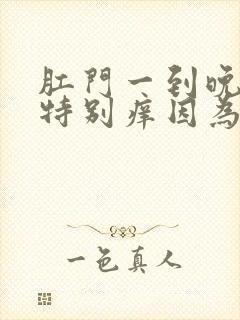 肛門一到晚
特别痒因為
一色真人